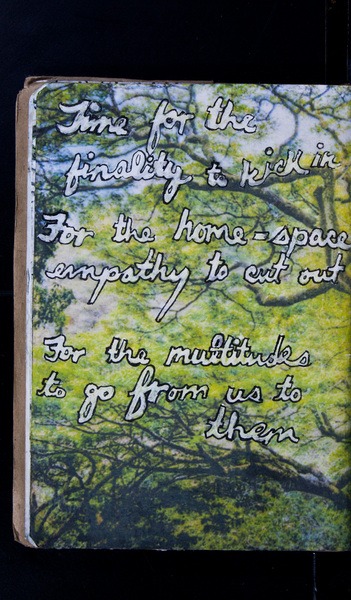 Time for the
finality to kick in
For the home-space
empathy to cut out
For the multitudes
to go from us to
them